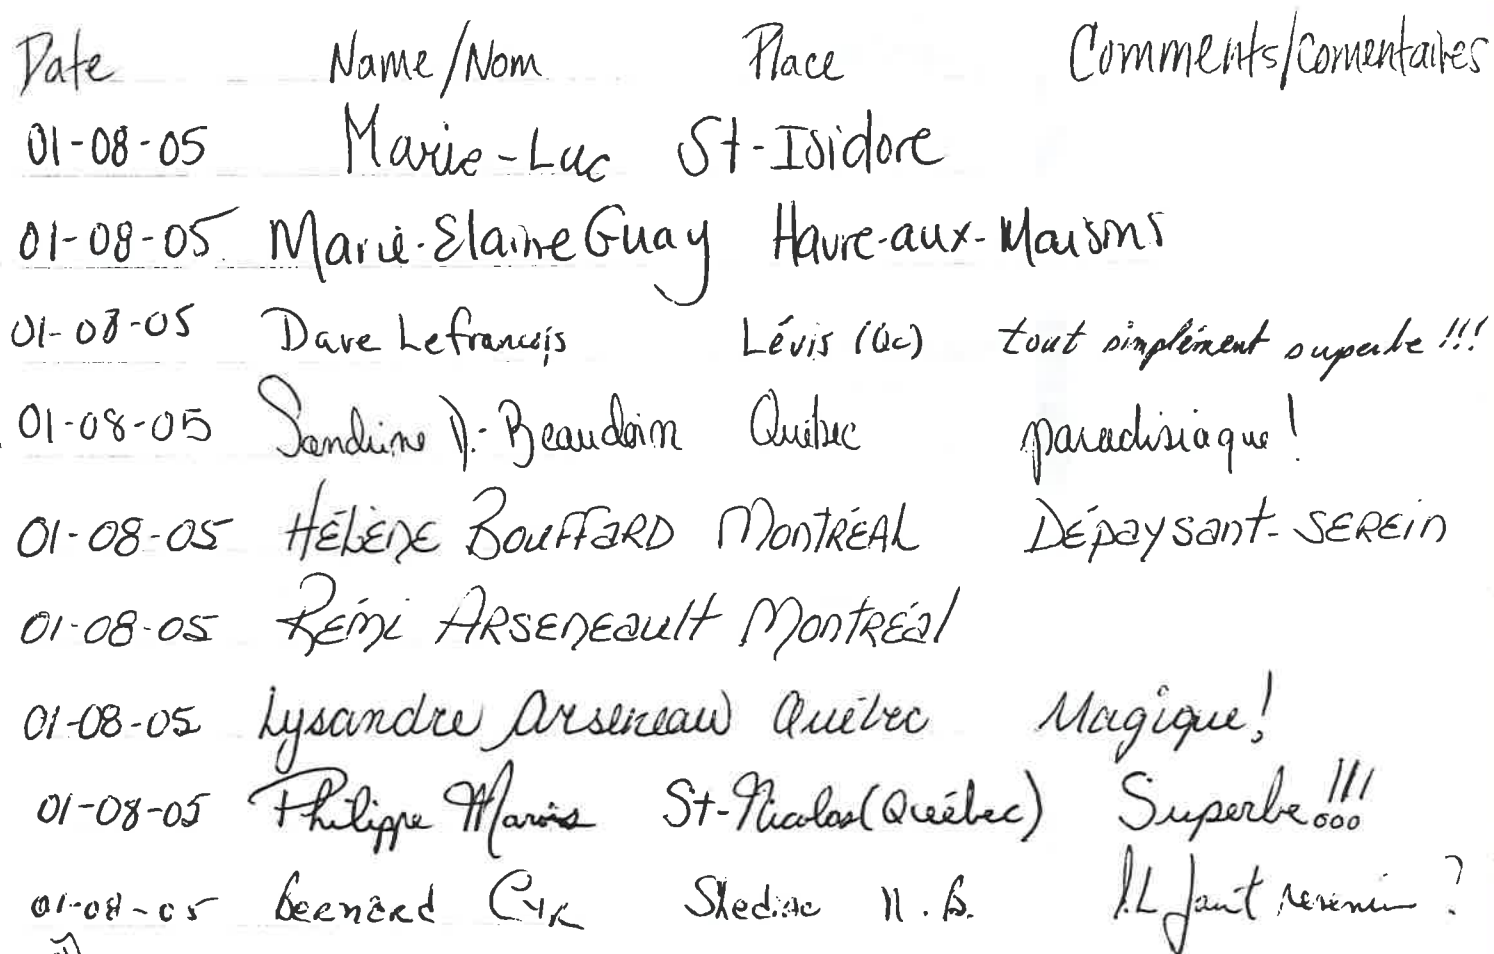 Date Name/Nom Place Comments/Comentaires
01-08-05 Marie-Luc St-Isidore
01-08-05 Marie-Elaine Guay Havre-aux-Maisons
01-08-05 Dave Lefrançis Lévis (Qc) tout simplement superbe !!!
01-08-05 Sandrine D.-Beaudoin Québec paradisiaque!
01-08-05 HÉLÈNE BOUFFARD MONTRÉAL DÉPaysant-SEREIN
01-08-05 RÉMI ARSENEAULT MONTRÉAL
01-08-05 Lysandre Arseneau Québec Magique!
01-08-05 Philippe Marois St-Nicolas (Québec) Superbe!!!
01-08-05 Bernard Cyr Shediac N.B. IL faut revenir ?